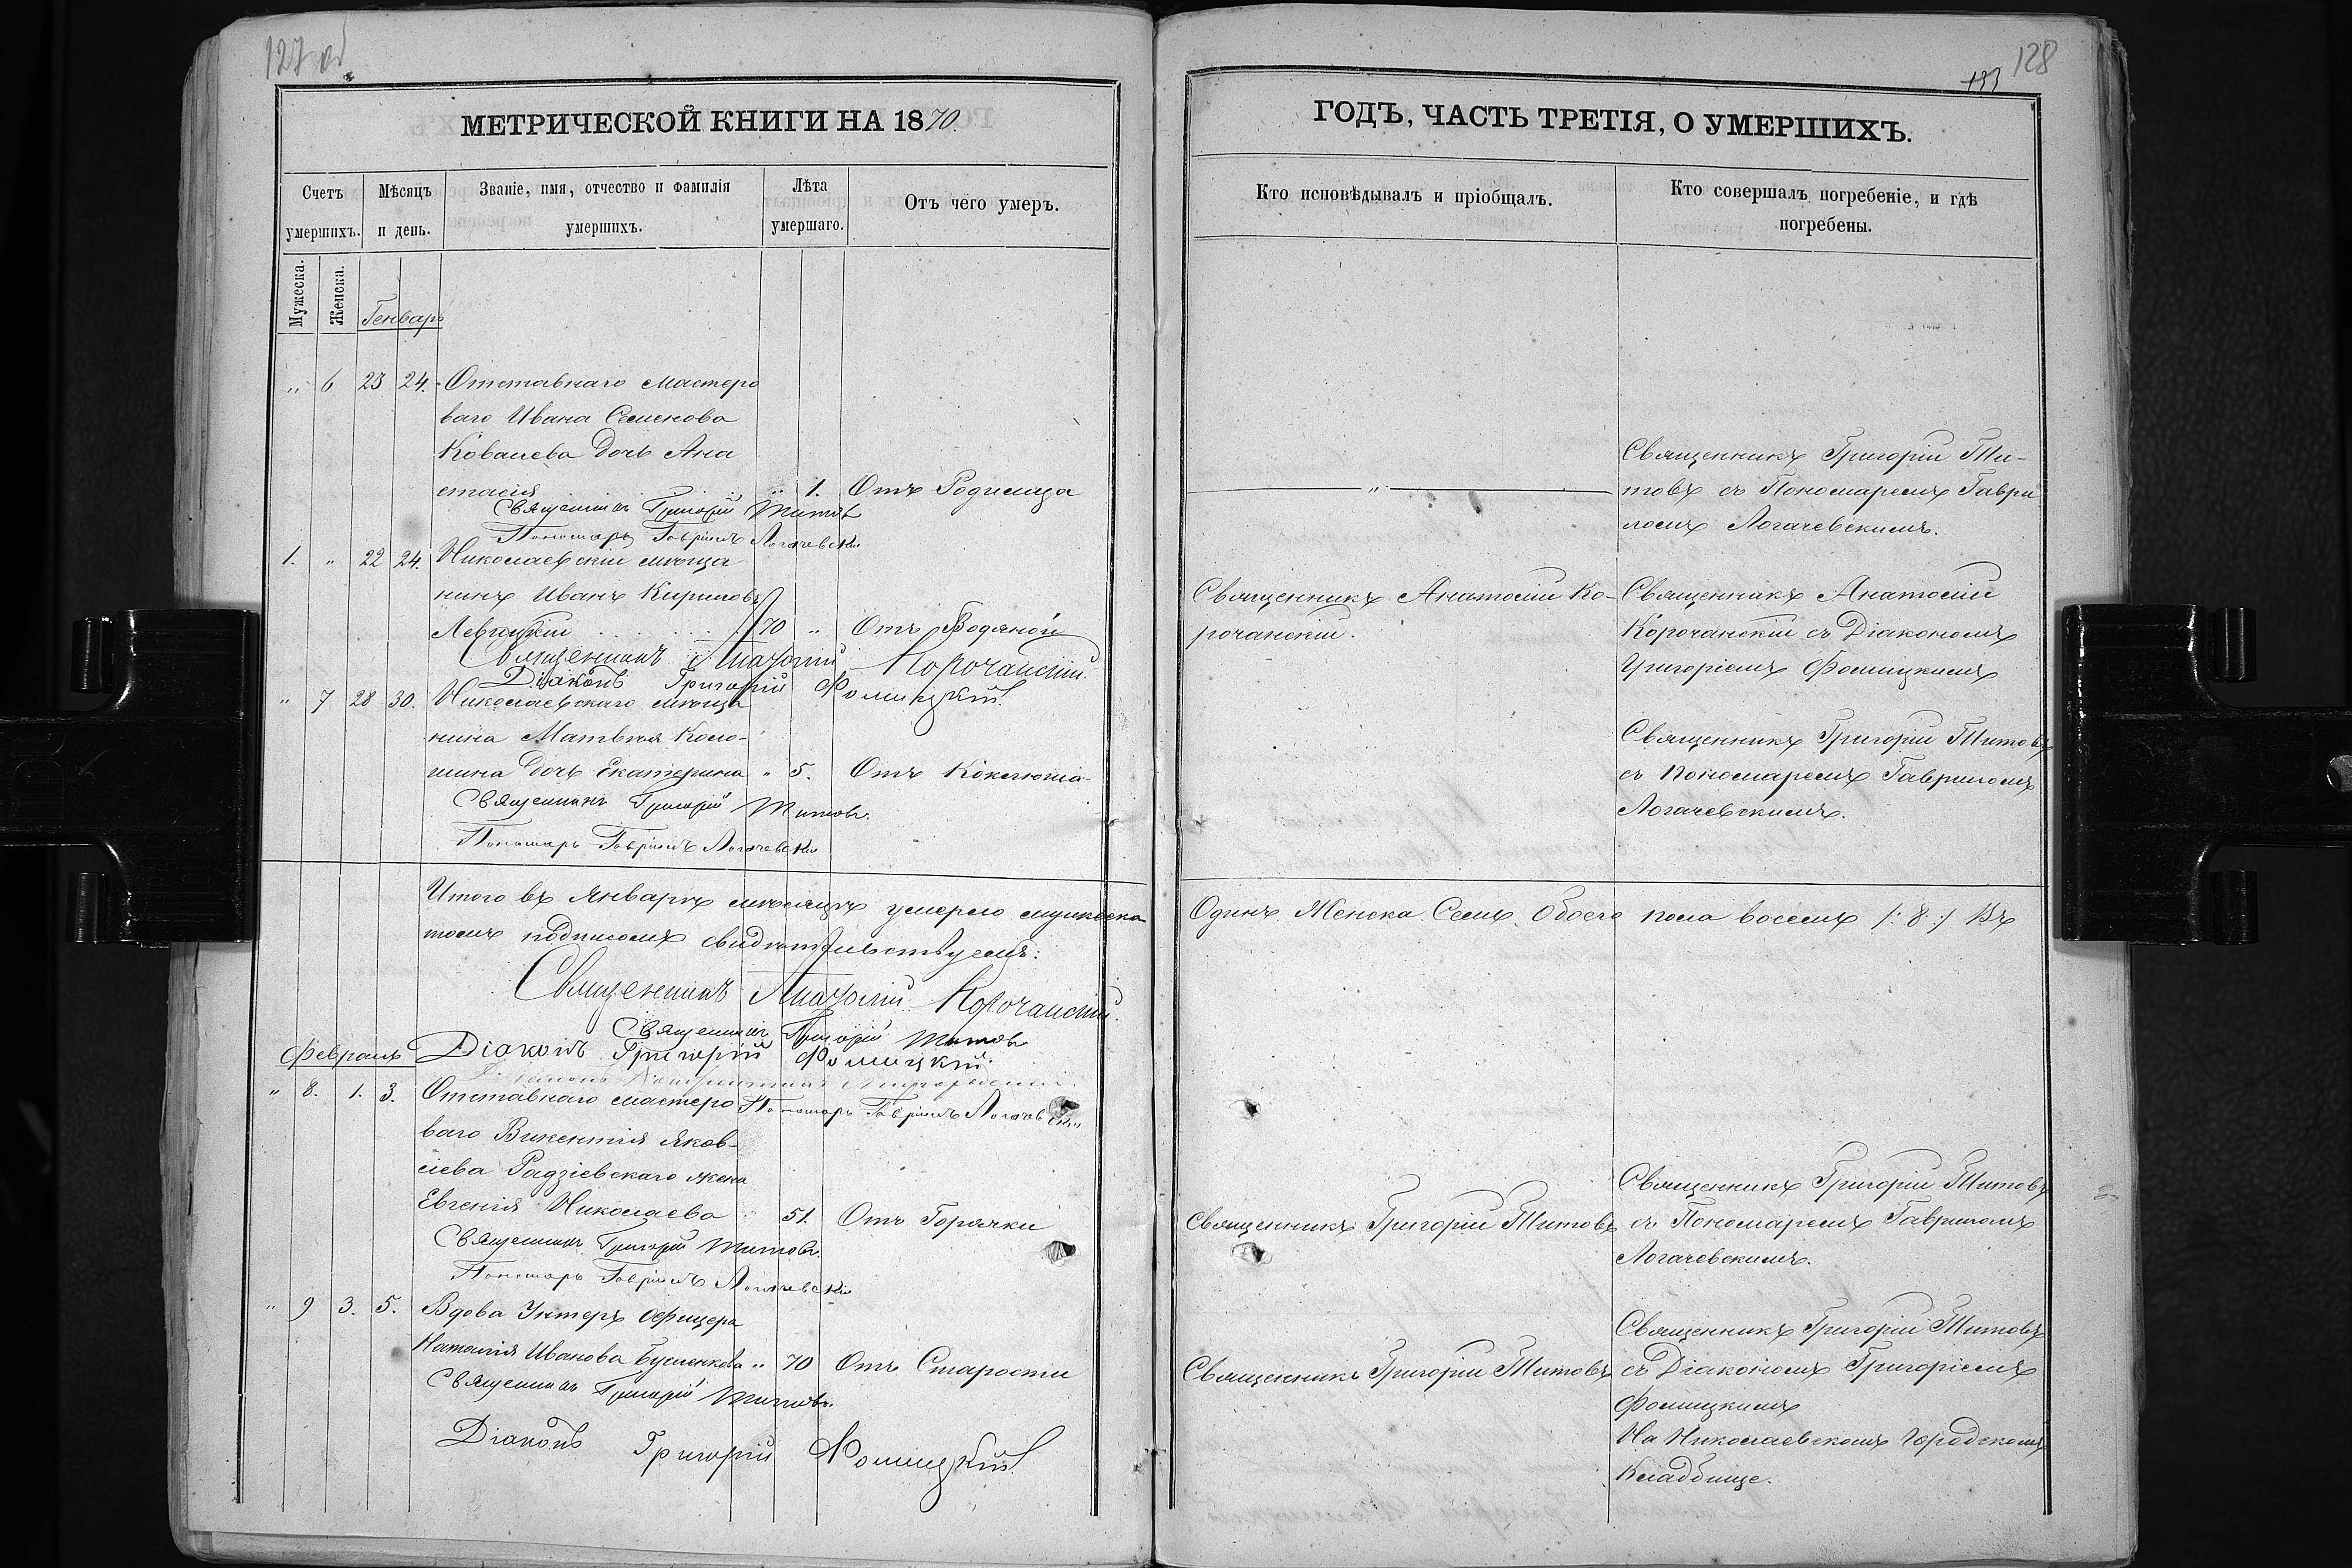 127 об.
МЕТРИЧЕСКОЙ КНИГИ НА 1870.
Счетъ умершихъ.
Мѣсяцъ и день.
Званіе, имя, отчество и фамилія умершихъ.
Лѣта умершаго.
Отъ чего умеръ.
Мужеска.
Женска.
Генварь
„ 6 23 24. Отставнаго мастеро
ваго Ивана Семенова
Ковалева дочь Ана
стасія „ 1. Отъ Родимца
Священникъ Григорій Титовъ
Пономарь Гавріилъ Логачевскій
1. „ 22 24. Николаевскій мѣща
нинъ Иванъ Кириловъ
Левицкій 70 „ Отъ Водяной
Священникъ Анатолій Корочанскій.
Діаконъ Григорій Фомицкій.
„ 7 28 30. Николаевскаго мѣща
нина Матвѣя Коло-
шина дочь Екатерина „ 5. Отъ Коклюша
Священникъ Григорій Титовъ.
Пономарь Гавріилъ Логачевскій
Итого въ Январѣ мѣсяцѣ умерло мужеска
томъ подписомъ свидѣтельствуемъ:
Священникъ Анатолій Корочанскій.
Священникъ Григорій Титовъ
Февраль Діаконъ Григорій Фомицкій.
Пономарь Гавріилъ Логачевскій
„ 8. 1. 3. Отставнаго мастеро
ваго Викентія Яков-
лева Радзіевскаго жена
Евгенія Николаева 51. Отъ Горячки
Священникъ Григорій Титовъ.
Пономарь Гавріилъ Логачевскій
„ 9 3. 5. Вдова Унтеръ Офицера
Наталія Иванова „ 70 Отъ Старости
Священникъ Григорій Титовъ.
Діаконъ Григорій Фомицкій.
128
133
ГОДЪ, ЧАСТЬ ТРЕТІЯ, О УМЕРШИХЪ.
Кто исповѣдывалъ и пріобщалъ.
Кто совершалъ погребеніе, и гдѣ
погребены.
Священникъ Григорій Ти-
„ товъ съ Пономаремъ Гаври
ломъ Логачевскимъ.
Священникъ Анатолій Ко-
рочанскій.
Священникъ Анатолій
Корочанскій съ Діакономъ
Григоріемъ Фомицкимъ
Священникъ Григорій Титовъ
съ Пономаремъ Гавриломъ
Логачевскимъ.
Одинъ Женска Семь Обоего пола восемь /: 8 :/ Въ
Священникъ Григорій Титовъ
Священникъ Григорій Титовъ
съ Пономаремъ Гавриломъ
Логачевскимъ.
Священникъ Григорій Титовъ
Священникъ Григорій Титовъ
съ Діакономъ Григоріемъ
Фомицкимъ
На Николаевскомъ Городскомъ
Кладбище.